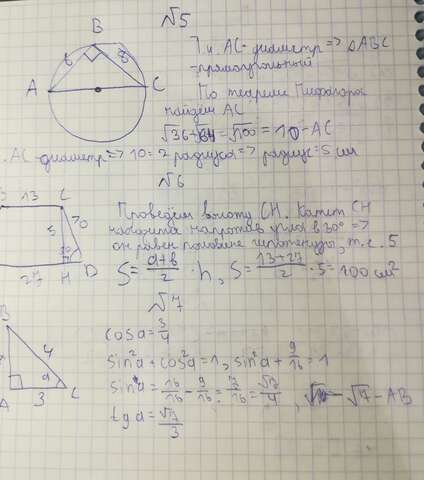 √5
B
6 8
A C
Т.к. AC-диаметр=> △ABC
-прямоугольный
По теореме Пифагора
найдём AC
√36+64=√100=10-AC
AC-диаметр=>10=2 радиуса=> радиус=5 см
√6
13 C
10
5
27 H D
Проведём высоту CH. Катет CH
находится напротив угла в 30° =>
он равен половине гипотенузы, т.е. 5
S=\frac{a+b}{2}·h, S=\frac{13+27}{2}·5=100см²
√7
B
4
a
A 3 C
cosa=\frac{3}{4}
sin²a+cos²a=1, sin²a+\frac{9}{16}=1
sin²a=\frac{16}{16}-\frac{9}{16}=\frac{7}{16}=\frac{√7}{4}, √7-AB
tga=\frac{√7}{3}